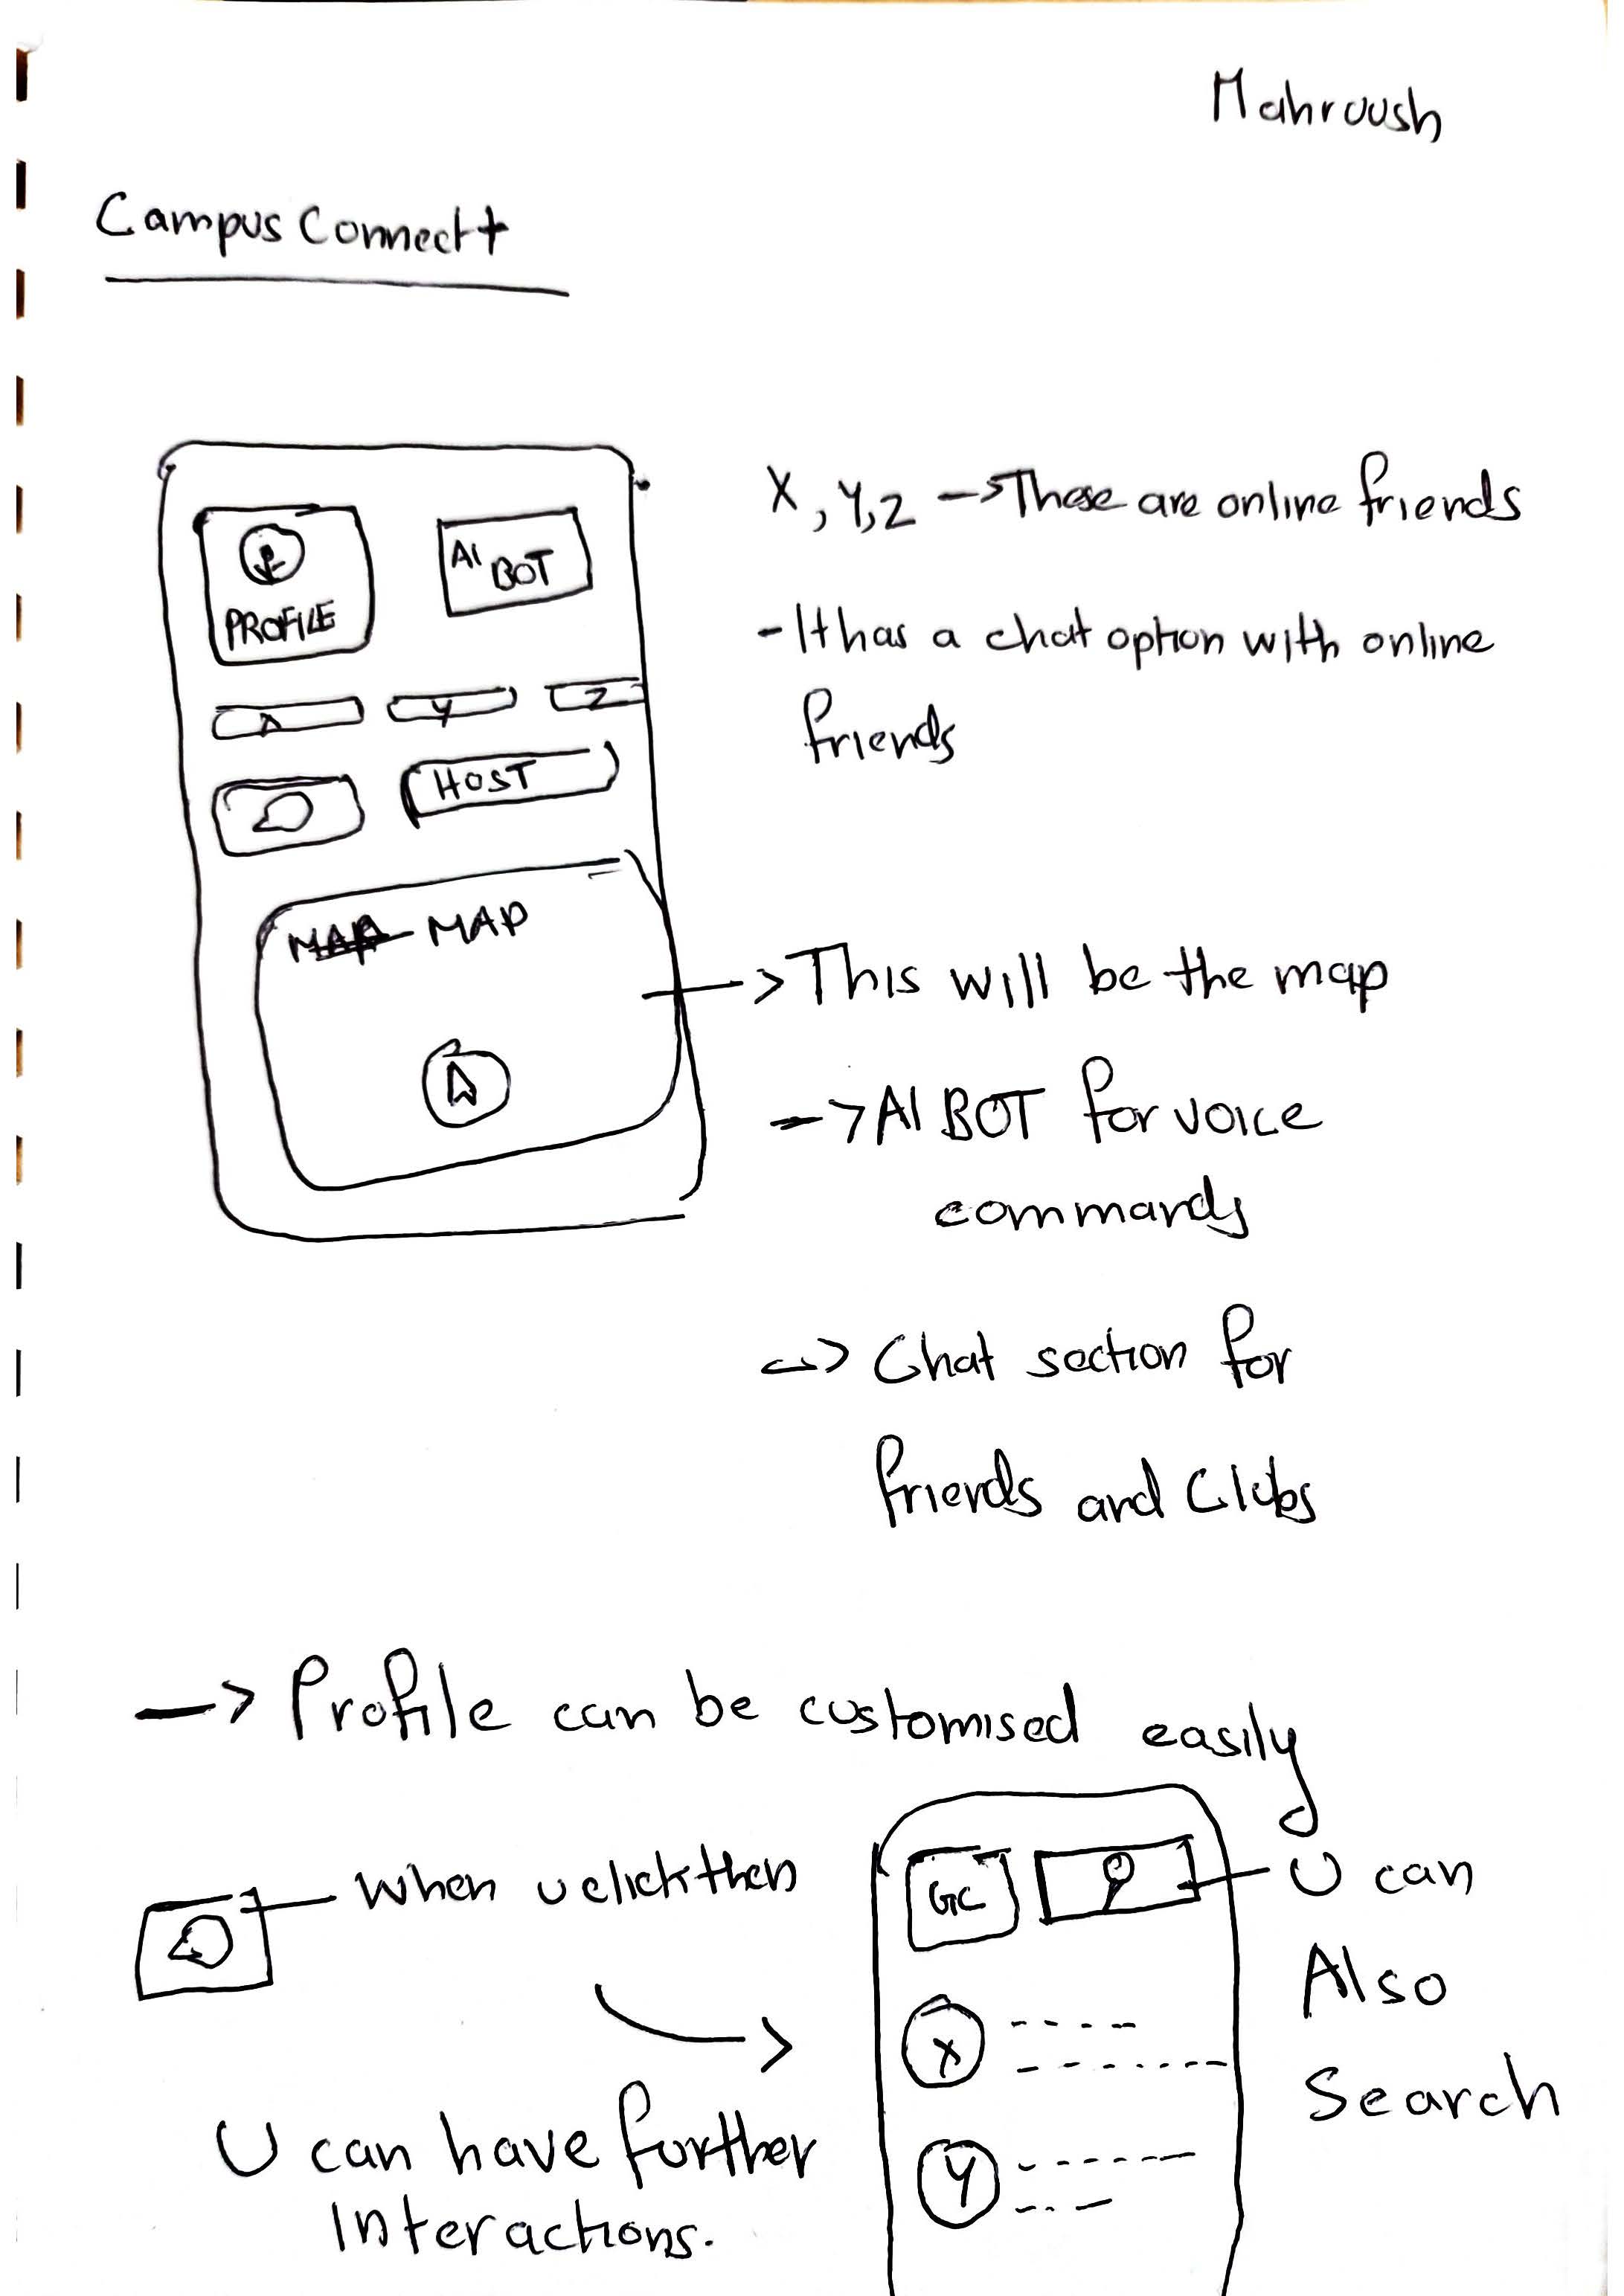 Mahroosh
Campus Connect
PROFILE
AI
BOT
X
Y
Z
HOST
MAP
X, Y, Z -> These are online friends
- It has a chat option with online
friends
-> This will be the map
-> AI BOT for voice
commands
-> Chat section for
friends and Clubs
-> Profile can be customised easily
When u click then
U can have further
Interactions.
GC
X
Y
U can
Also
Search